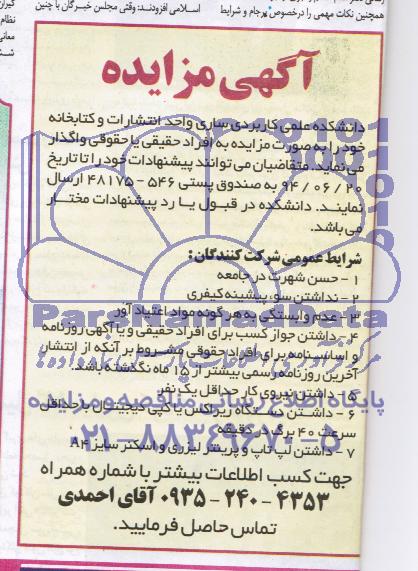 همچنین نکات مهمی را درخصوص برجام و شرایط
اسلامی افزودند: وقتی مجلس خبرگان با چنین
آگهی مزایده
دانشکده علمی کاربردی ساری واحد انتشارات و کتابخانه
خود را به صورت مزایده به افراد حقیقی یا حقوقی واگذار
می نماید. متقاضیان می توانند پیشنهادات خود را تا تاریخ
۹۴/۰۶/۲۰ به صندوق پستی ۵۴۶ - ۴۸۱۷۵ ارسال
نمایند. دانشکده در قبول یا رد پیشنهادات مختار
می باشد.
شرایط عمومی شرکت کنندگان:
۱ - حسن شهرت در جامعه
۲ - نداشتن سوء پیشینه کیفری
۳ - عدم وابستگی به هر گونه مواد اعتیاد آور
۴ - داشتن جواز کسب برای افراد حقیقی و یا آگهی روزنامه
و اساسنامه برای افراد حقوقی مشروط بر آنکه از انتشار
آخرین روزنامه رسمی بیشتر از ۱۵ ماه نگذشته باشد.
۵ - داشتن نیروی کار حداقل یک نفر
۶ - داشتن دستگاه زیراکس یا کپی دیجیتال با حداقل
سرعت ۴۰ برگ در دقیقه
۷ - داشتن لپ تاپ و پرینتر لیزری و اسکنر سایز A۴
جهت کسب اطلاعات بیشتر با شماره همراه
۰۹۳۵ - ۲۴۰ - ۴۳۵۳ آقای احمدی
تماس حاصل فرمایید.
ParsNamadData
پایگاه اطلاع رسانی مناقصه و مزایده
۰۲۱-۸۸۳۴۹۶۷۰-۵